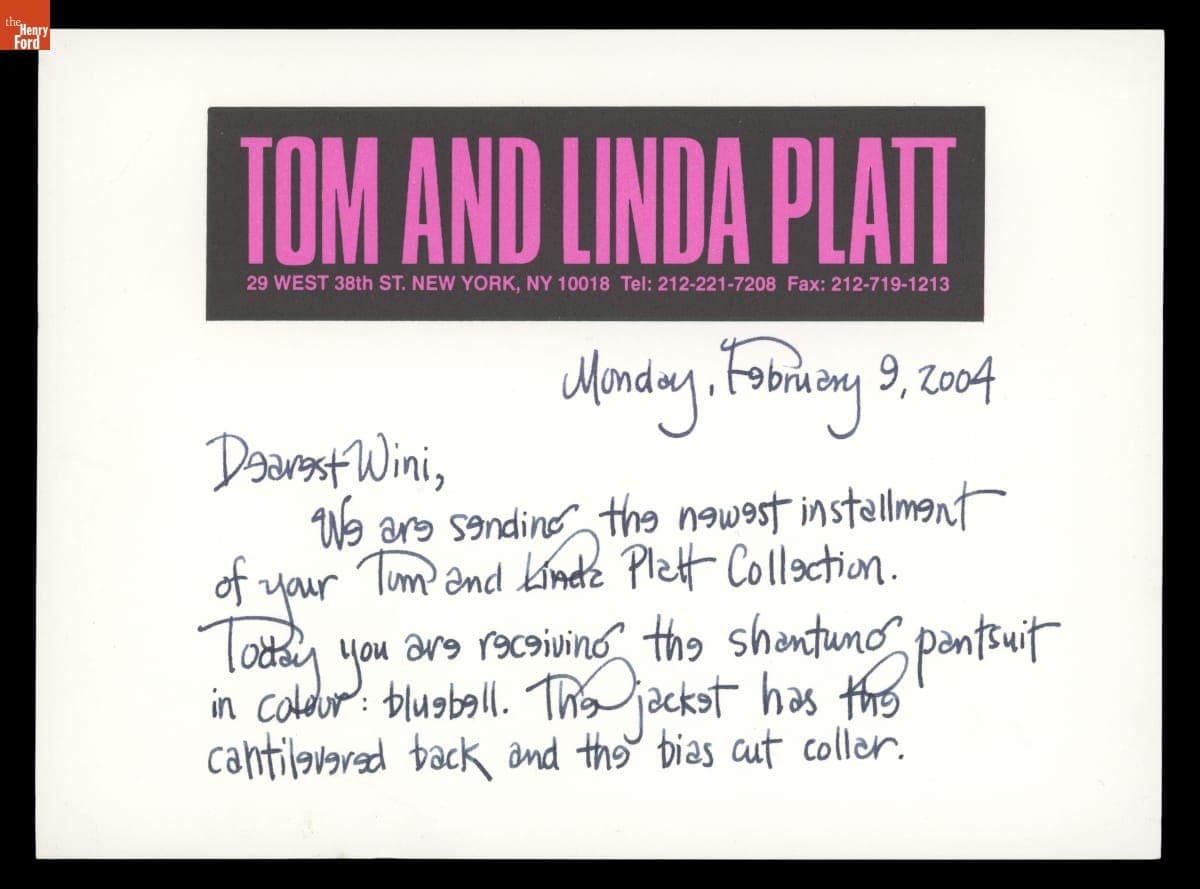 the
Henry
Ford
TOM AND LINDA PLATT
29 WEST 38th ST. NEW YORK, NY 10018 Tel: 212-221-7208 Fax: 212-719-1213
Monday, February 9, 2004
Dearest Wini,
We are sending the newest installment
of your Tom and Linda Platt Collection.
Today you are receiving the shantung pantsuit
in colour: bluebell. The jacket has the
cantilevered back and the bias cut collar.